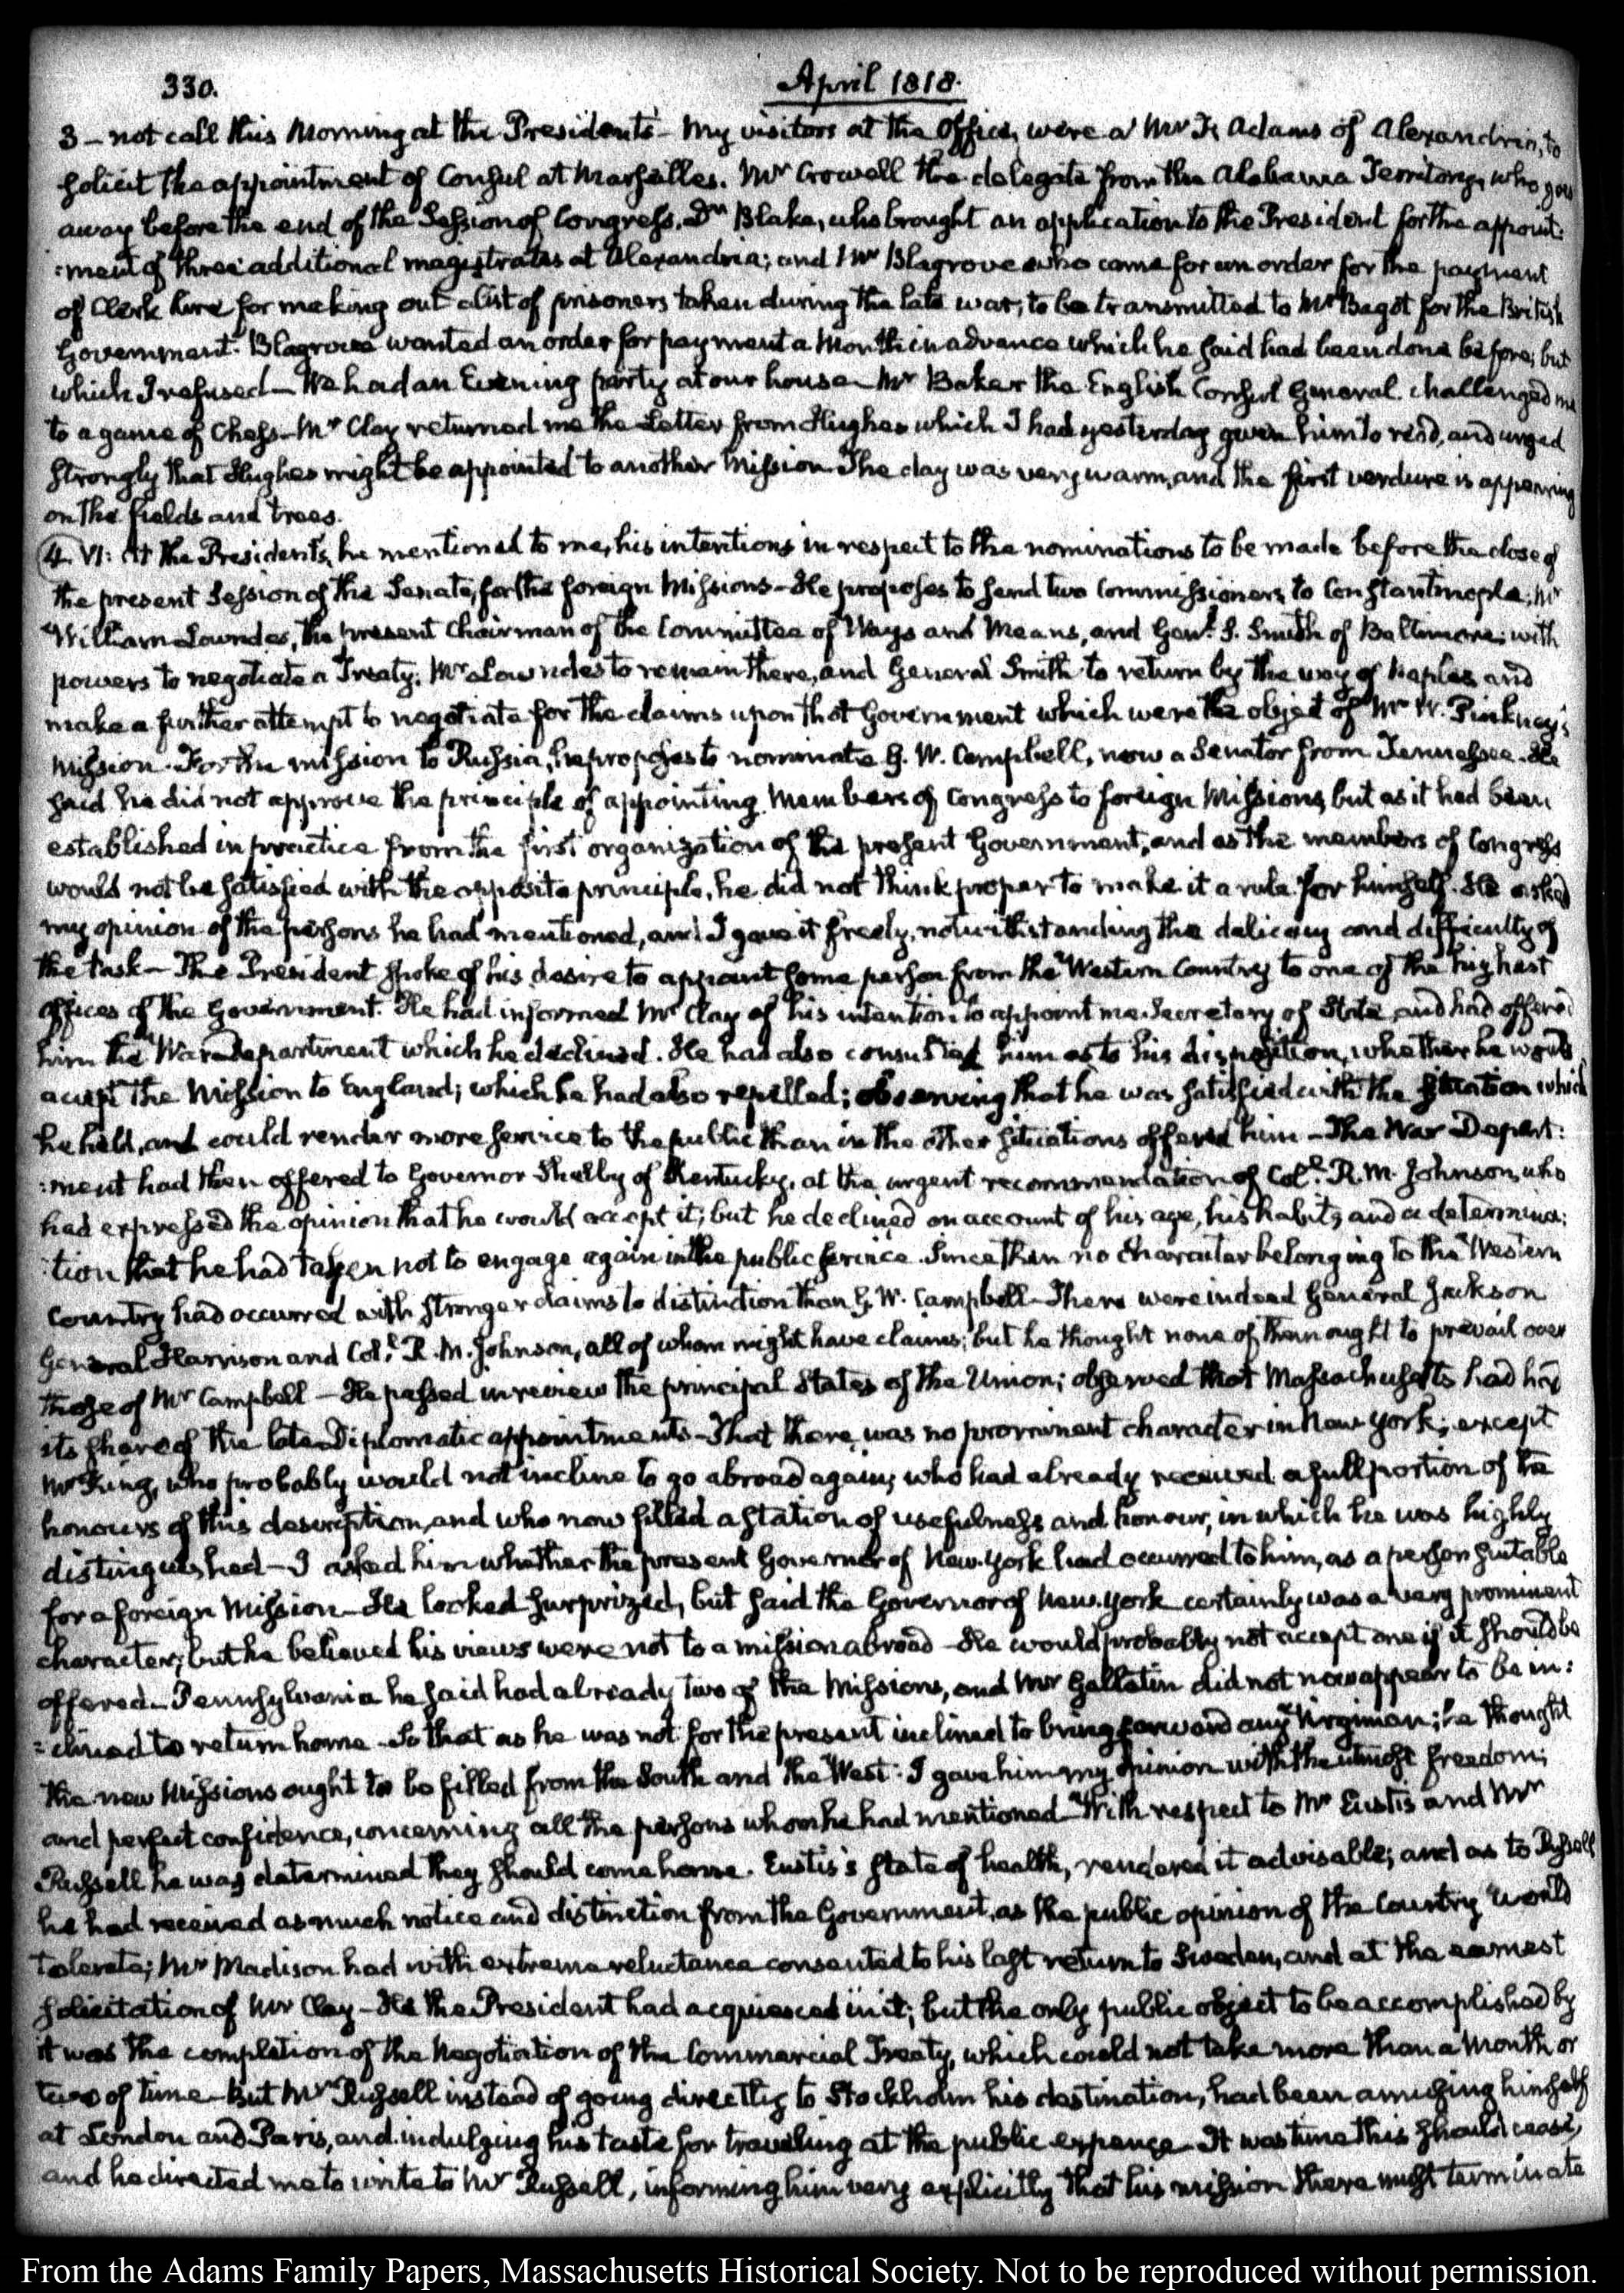 330.
April 1818.
3 – not call this Morning at the President's – My visitors at the Office, were a Mr Adams of Alexandria, to
solicit the appointment of Consul at Marseilles. Mr Crowell the delegate from the Alabama Territory, who goes
away before the end of the Session of Congress. Dr Blake, who brought an application to the President for the appoint:
:ment of three additional magistrates at Alexandria; and Mr Blagrove who came for an order for the payment
of Clerk hire for making out a list of prisoners taken during the late war, to be transmitted to Mr Bagot for the British
Government. Blagrove wanted an order for payment a Month in advance which he said had been done before; but
which I refused – We had an Evening party at our house – Mr Baker the English Consul General challenged me
to a game of Chess – Mr Clay returned me the Letter from Hughes which I had yesterday given him to read, and urged
strongly that Hughes might be appointed to another Mission. The day was very warm, and the first verdure is appearing
on the fields and trees.
4. VI: At the President's, he mentioned to me, his intentions in respect to the nominations to be made before the close of
the present Session of the Senate, for the foreign Missions – He proposes to send two Commissioners to Constantinople; Mr
William Lowndes, the present Chairman of the Committee of Ways and Means, and Genl. S. Smith of Baltimore; with
powers to negotiate a Treaty. Mr Lowndes to remain there, and General Smith to return by the way of Naples and
make a further attempt to negotiate for the claims upon that Government which were the object of Mr W. Pinkney's
Mission. For the mission to Russia, he proposes to nominate G. W. Campbell, now a Senator from Tennessee. He
said he did not approve the principle of appointing Members of Congress to foreign Missions, but as it had been
established in practice from the first organization of the present Government, and as the members of Congress
would not be satisfied with the opposite principle, he did not think proper to make it a rule for himself. He asked
my opinion of the persons he had mentioned, and I gave it freely, notwithstanding the delicacy and difficulty of
the task – The President spoke of his desire to appoint some person from the Western Country to one of the highest
offices of the Government. He had informed Mr Clay of his intention to appoint me Secretary of State, and had offered
him the War Department which he declined. He had also consulted him as to his disposition, whether he would
accept the Mission to England; which he had also repelled; observing that he was satisfied with the situation which
he held, and could render more service to the public than in the other situations offered him – The War Depart:
:ment had then offered to Governor Shelby of Kentucky, at the urgent recommendation of Coll. R. M. Johnson, who
had expressed the opinion that he would accept it; but he declined on account of his age, his habits, and a determina:
:tion that he had taken not to engage again in the public service. Since then no character belonging to the Western
Country had occurred with stronger claims to distinction than G. W. Campbell – There were indeed General Jackson
General Harrison and Coll. R. M. Johnson, all of whom might have claims; but he thought none of them ought to prevail over
those of Mr Campbell – He passed in review the principal States of the Union; observed that Massachusetts had had
its share of the late Diplomatic appointments – That there was no prominent character in New York; except
Mr King, who probably would not incline to go abroad again, who had already received a full portion of the
honours of this description, and who now filled a station of usefulness and honour, in which he was highly
distinguished – I asked him whether the present Governor of New-York had occurred to him, as a person suitable
for a foreign Mission – He looked surprized, but said the Governor of New-York certainly was a very prominent
character; but he believed his views were not to a mission abroad – He would probably not accept one if it should be
offered – Pennsylvania he said had already two of the Missions, and Mr Gallatin did not now appear to be in:
:clined to return home. So that as he was not for the present inclined to bring forward any Virginian; he thought
the new Missions ought to be filled from the South and the West. I gave him my opinion with the utmost freedom;
and perfect confidence, concerning all the persons whom he had mentioned – With respect to Mr Eustis and Mr
Russell he was determined they should come home. Eustis's state of health, rendered it advisable; and as to Russell
he had received as much notice and distinction from the Government, as the public opinion of the Country would
tolerate; Mr Madison had with extreme reluctance consented to his last return to Sweden, and at the earnest
solicitation of Mr Clay – He the President had acquiesced in it; but the only public object to be accomplished by
it was the completion of the Negotiation of the Commercial Treaty, which could not take more than a Month or
two of time – But Mr Russell instead of going directly to Stockholm his destination, had been amusing himself
at London and Paris, and indulging his taste for traveling at the public expence – It was time this should cease,
and he directed me to write to Mr Russell, informing him very explicitly that his mission there must terminate
From the Adams Family Papers, Massachusetts Historical Society. Not to be reproduced without permission.